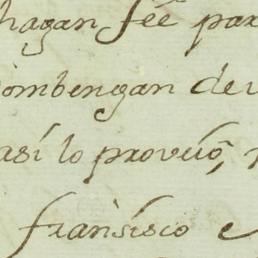 hagan fée par
combengan de
así lo proveió,
fransisco